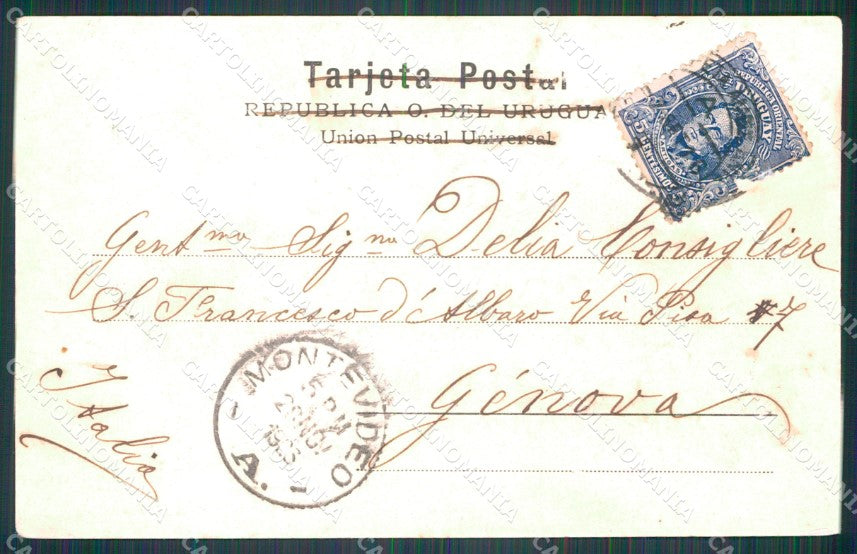 Tarjeta Postal
REPUBLICA O. DEL URUGUA
Union Postal Universal
REPUBLICA ORIENTAL
URUGUAY
5 CENTESIMOS
Gent.mo Sig.na Delia Consigliere
S. Francesco d'Albaro Via Pisa 7
Génova
Italia
MONTEVIDEO
5 PM
A.
CARTOLINOMANIA